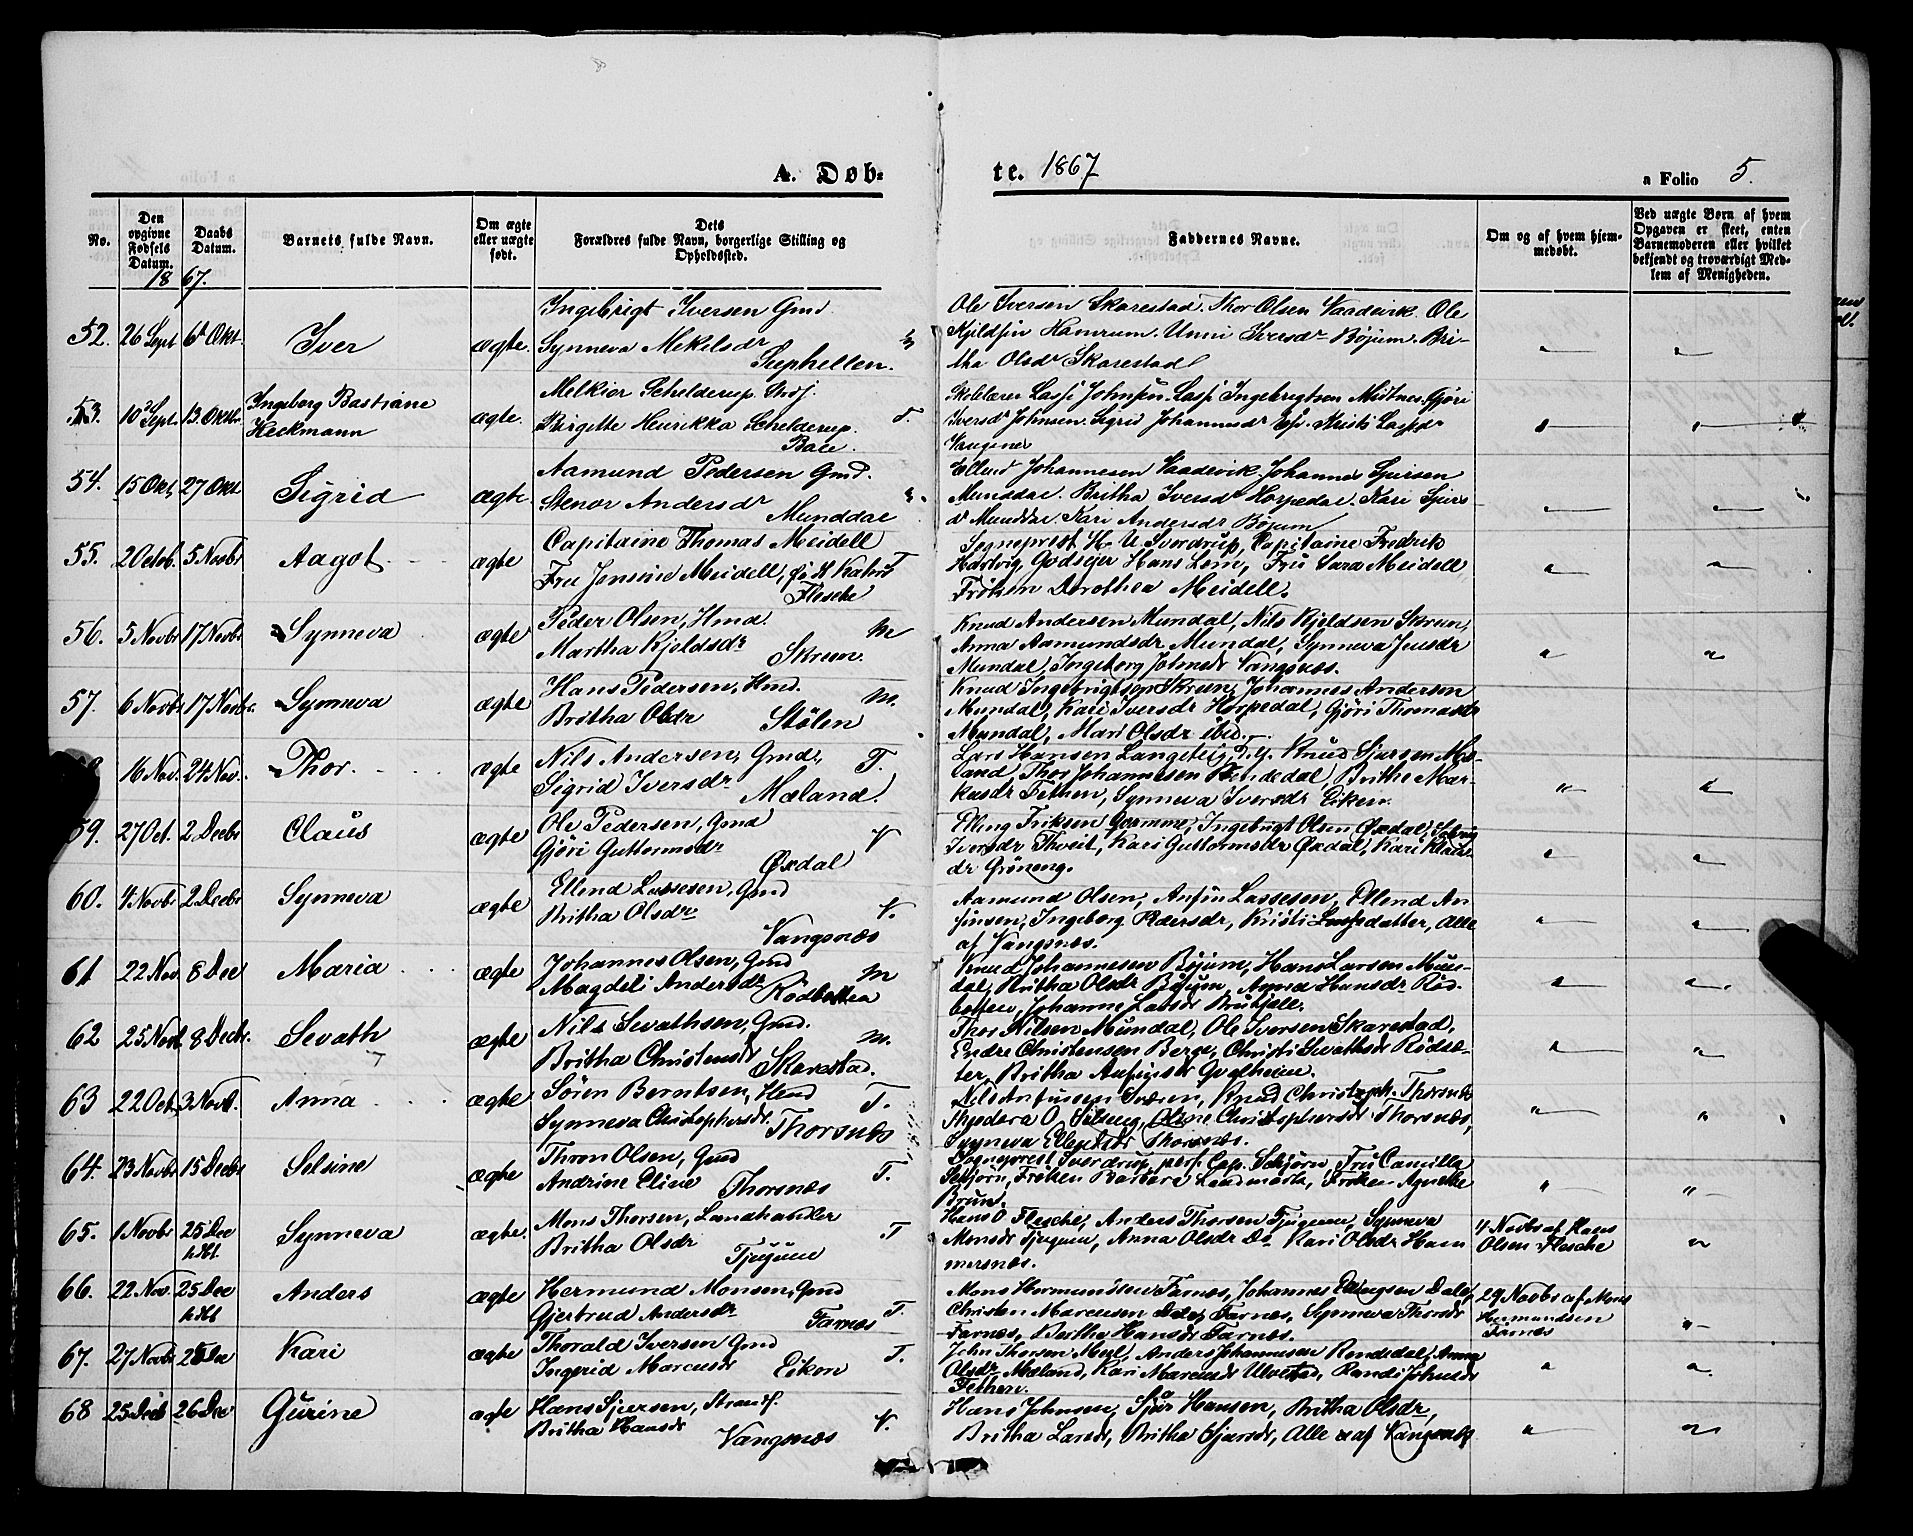 A. Døb-
te. 1867
a Folio 5.
No.
Den opgivne Fødsels Datum.
Daabs Datum.
Barnets fulde Navn.
Om ægte eller uægte født.
Dets Forældres fulde Navn, borgerlige Stilling og Opholdssted.
Faddernes Navne.
Om og af hvem hjemmedøbt.
Ved uægte Børn af hvem Opgaven er skeet, enten Barnemoderen eller hvilket bekjendt og troværdigt Medlem af Menigheden.
18 67.
52. 26 Sept 6 Okt. Iver ægte.
Ingebrigt Iversen Gmd.
Synneva Mikelsdr
Sephellen.
Ole Iversen Skarestad. Thor Olsen Vaadevik. Ole
Hamrum. Unni Iversdr Bøjum. Bri-
tha Olsdr Skarestad
53. 10 Sept. 13 Oktbr. Ingeborg Bastiane
Heckmann ægte. T.
Melkior Schelderup
Birgitte Henrikka Schelderup.
Bale.
Lasse Johnsen. Lasse Ingebrigtsen Gjøri
Iversdr Johnsen. Sigrid Johannesdr Kristi Lassedr
Vangsnes
54. 15 Okt. 27 Okt Sigrid ægte.
Aamund Pedersen Gmd.
Stenor Andersdr
Munddal
Ellend Johannesen Vaadevik. Johannes Sjursen
Mundal. Britha Iversdr Horpedal. Kari Sjurs
dr Munddal. Kari Andersdr Bøjum
55. 2 Octob. 5 Novbr Aagot ægte
Capitaine Thomas Meidell
Fru Jensine Meidell,
Flesche T
Sogneprest H. U. Sverdrup, Capitaine Fredrik
Hartvig, Godsejer Hans Lem, Fru Sara Meidell,
Frøken Dorothea Meidell.
56. 5 Novbr 17 Novbr Synneva ægte
Peder Olsen, Hmd.
Martha Kjeldsdr
Skreen. M
Knud Andersen Mundal, Nils Kjeldsen Skreen,
Anna Aamundsdr Mundal, Synneva Jensdr
Mundal, Ingeborg Johnsdr Vangsnæs.
57. 6 Novbr 17 Novbr. Synneva ægte
Hans Pedersen, Hmd.
Britha Olsdr
Stølen M.
Knud Ingebrigtson Skreen, Johannes Andersen
Mundal, Kari Iversdr Horpedal, Gjøri Thomasdr
Mundal, Mari Olsdr ibid.
16 Nov. 24 Nov. Thor ægte
Nils Andersen, Gmd.
Sigrid Iversdr
Mæland. T.
Lars Hansen Langeteig, Knud Sjursen Mæ-
land, Thor Johannesen Rendedal, Britha Mar-
kusdr Fethen, Synneva Iversdr Eiken.
59. 27 Oct. 2 Decbr Claus ægte
Ole Pedersen, Gmd
Gjøri Guttormsdr
Øxdal V
Elling Eriksen Ingebrigt Olsen Øxdal,
Iversdr Thveit, Kari Guttormsdr Øxdal, Kari Klaus-
dr Grøneng.
60. 4 Novbr 2 Decbr Synneva ægte
Ellend Lassesen, Gmd
Britha Olsdr
Vangsnæs V.
Aamund Olsen, Anfin Lassesen, Ellend An-
finsen, Ingeborg Pdersdr, Kristi Lassedatter, Alle
af Vangsnæs.
61 22 Nov. 8 Dec Maria ægte
Johannes Olsen, Gmd
Magdeli Andersdr
Rødbotten M
Knud Johannesen Bøjum, Hans Larsen Mun-
dal, Britha Olsdr Bøjum, Anna Hansdr Rød-
botten, Johanne Larsdr
62 25 Novb. 8 Decbr. Sevath ægte
Nils Sevathsen, Gmd.
Britha Christensdr
Skarestad. M.
Thor Nilsen Mundal, Ole Iversen Skarestad,
Endre Christensen Berge, Christi Sevathsdr Rødse-
ter, Britha Anfinsdr
63 22 Oct. 3 Novb. Anna ægte
Søren Berntsen, Hmd
Synneva Christophersdr
Thorsnæs T.
Nils Anfinsen Knud Christoph. Thorsnæs
Christophersdr Thorsnæs,
Synneva Ellensdr Thorsnæs.
64. 23 Novbr 15 Decbr Selsine ægte
Thron Olsen, Gmd
Andrine Eline
Thorsnæs T.
Sogneprest Sverdrup, Cap. Fru Camilla
Frøken Barbara Frøken Agnethe
Brun.
65. 1 Novbr 25 Dec Synneva ægte.
Mons Thorsen, Landhandler
Britha Olsdr
Tjugum T
Hans O Flesche, Anders Thorsen Tjugum, Synneva
Monsdr Tjugum, Anna Olsdr Do Kari Olsdr Ham
mersnæs.
4 Novbr af Hans
Olsen Flesche
66. 22 Nov. 25 Dec Anders ægte
Hermund Monsen, Gmd
Gjertrud Andersdr
Farnæs T.
Mons Hermundsen Farnæs, Johannes Ellingsen Dale,
Christen Marcusen Dale, Farnæs, Synneva Thorsdr
Farnæs, Bertha Hansdr Farnæs.
29 Novbr af Mons
Hermundsen
Farnæs
67. 27 Novbr 25 Dec Kari ægte
Thorald Iversen Gmd
Ingrid Marcusdr
Eiken T.
John Thorsen Anders Johannesen Rendedal, Anna
Olsdr Mæland, Kari Marcusdr Ulvestad, Randi Johnsdr
Fethen.
68 25 Decb 26 Dec Gurine ægte
Hans Sjursen,
Britha Hansdr
Vangsnæs V.
Hans Johnsen, Sjur Hansen, Britha Olsdr,
Britha Larsdr, Britha Sjursdr, Alle af Vangsnæs